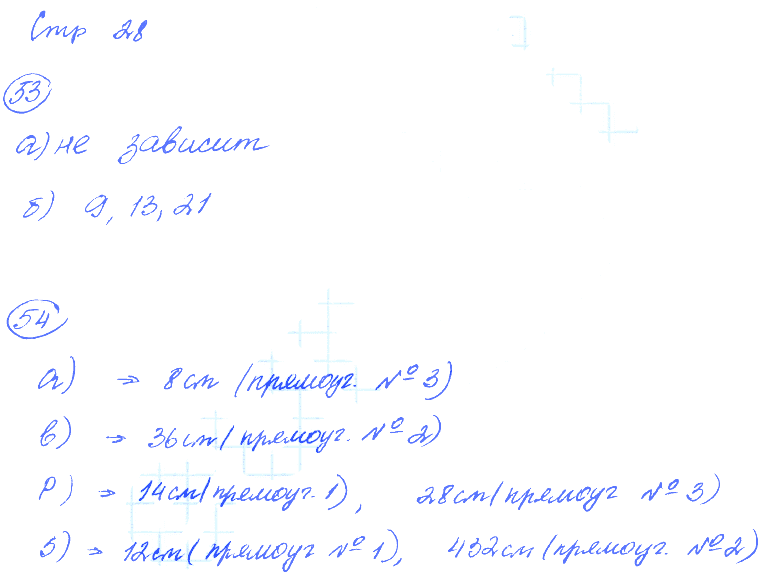 Стр 28
53
а) не зависит
б) 9, 13, 21
54
а) → 8см (прямоуг. №3)
в) → 36см (прямоуг. №2)
Р) → 14см (прямоуг. 1), 28см (прямоуг №3)
S) → 12см (прямоуг №1), 432см (прямоуг. №2)